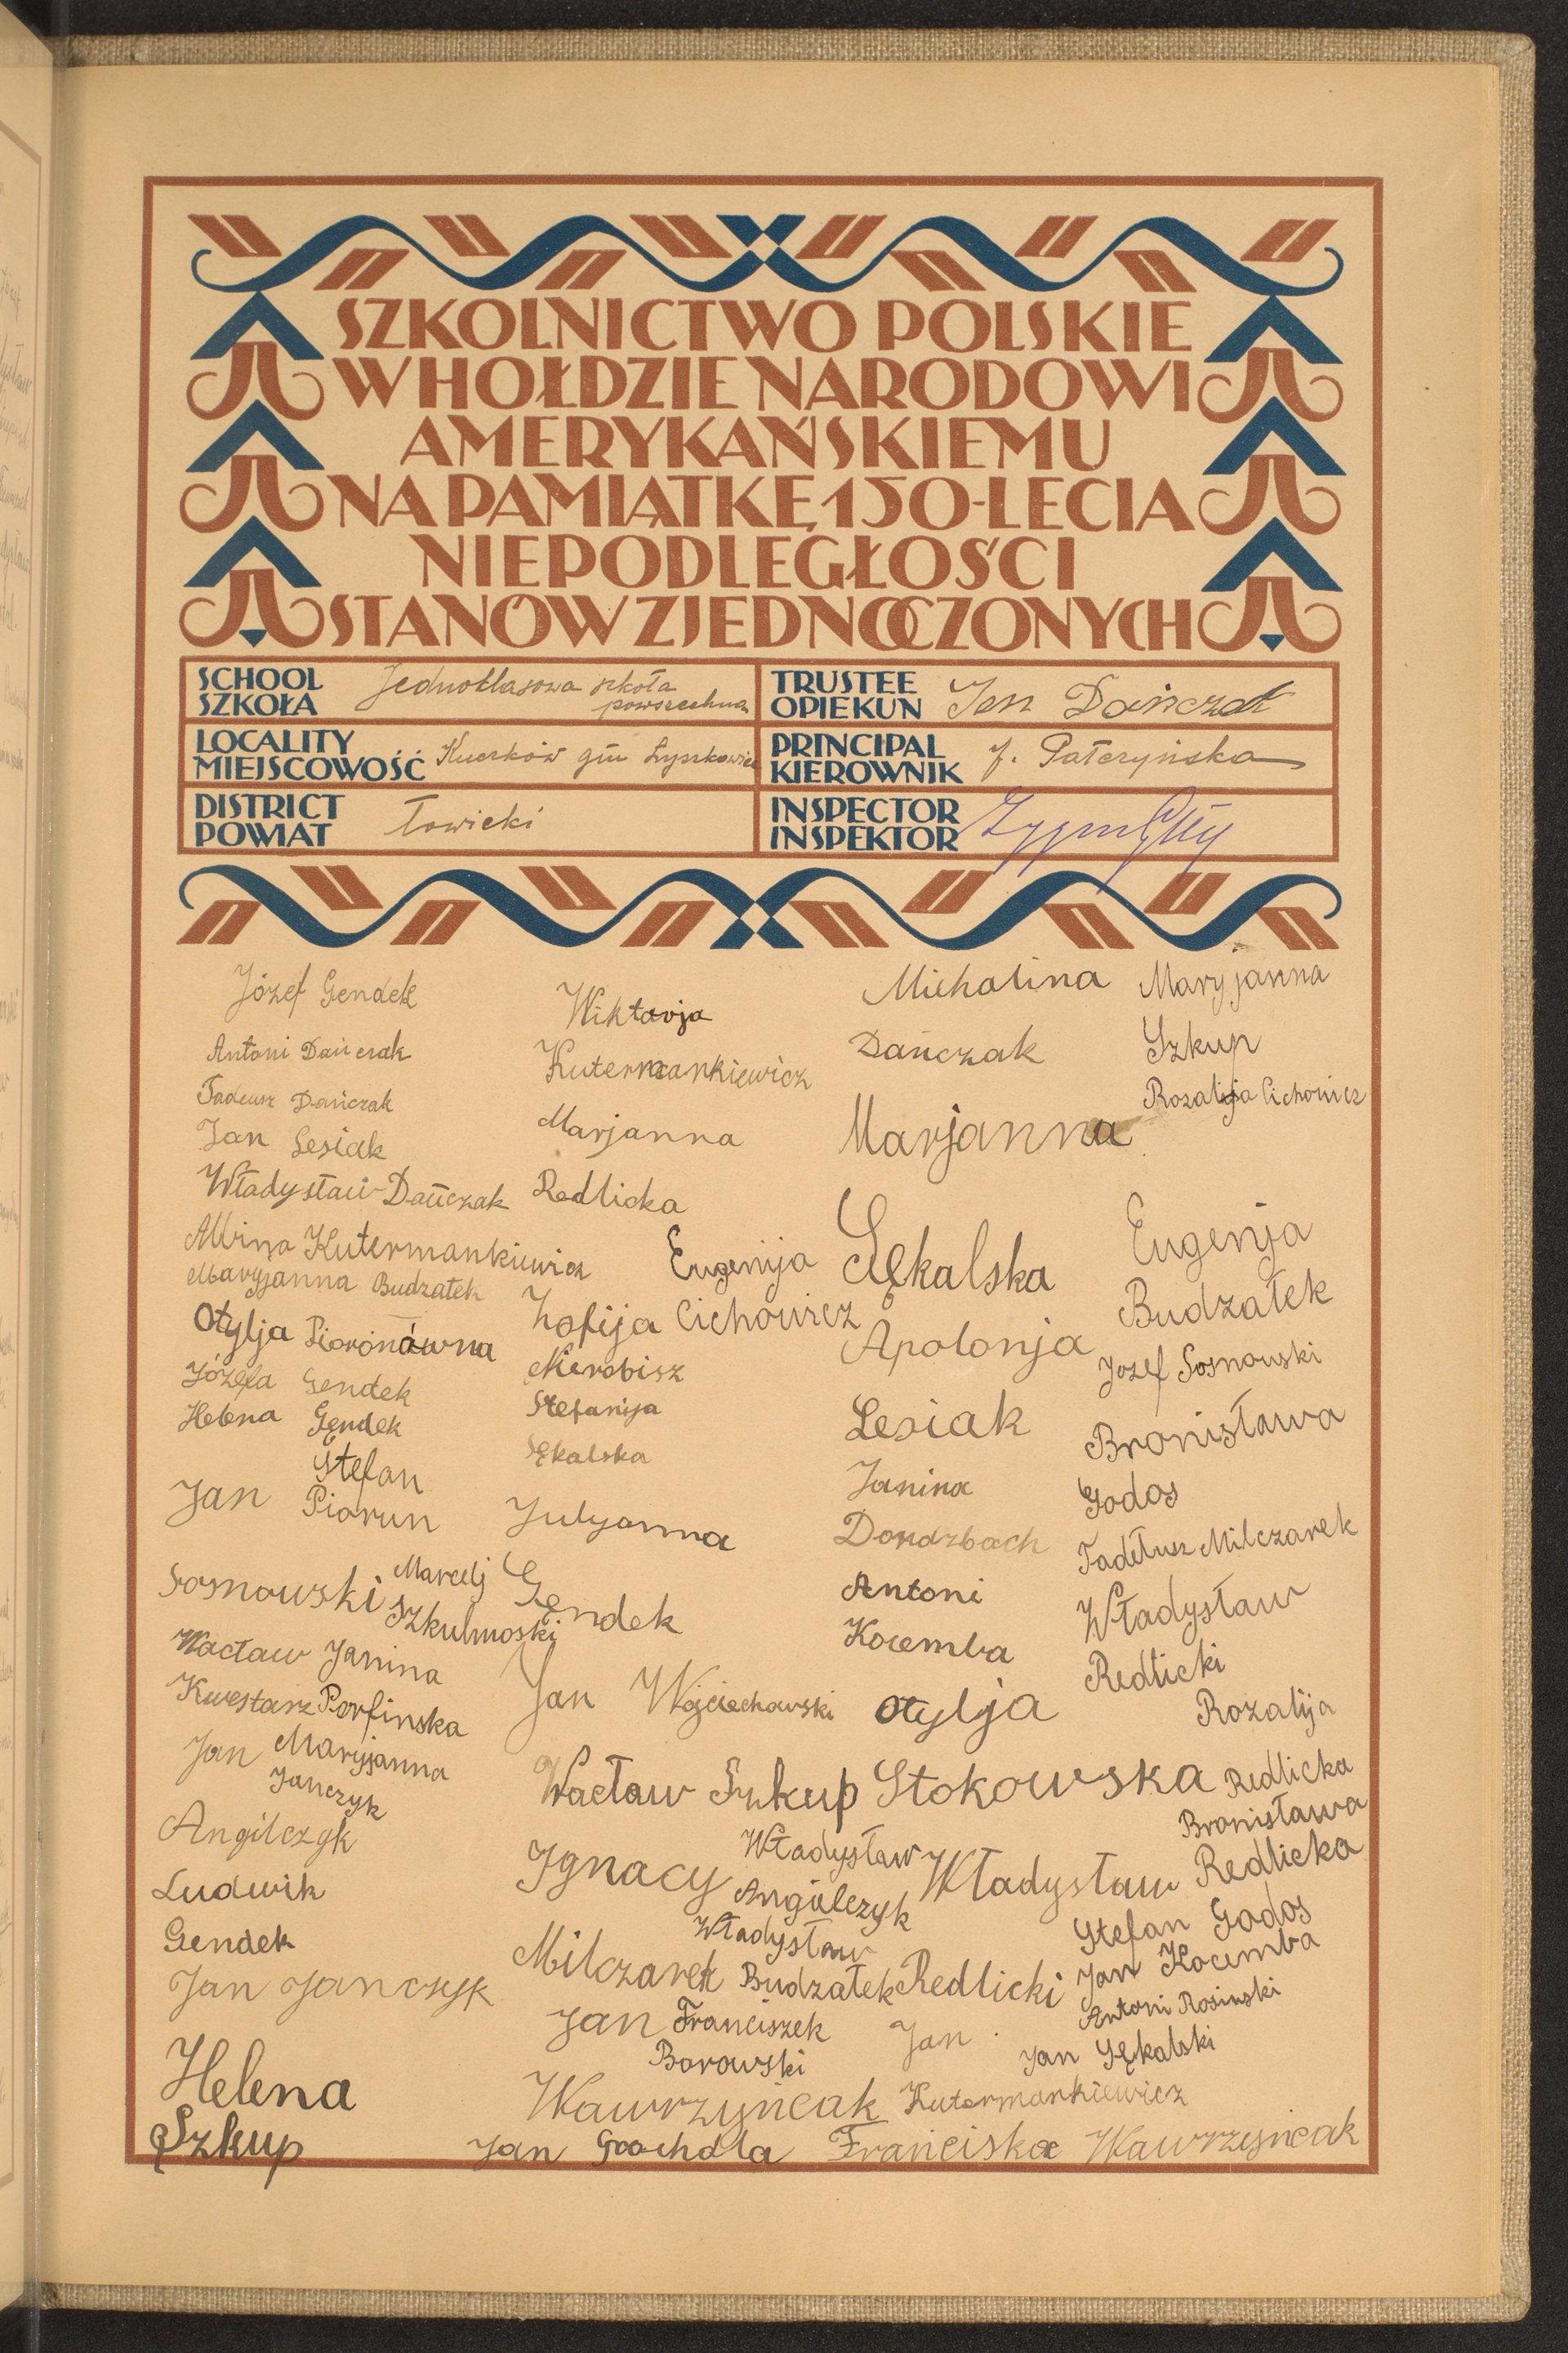 SZKOLNICTWO POLSKIE
W HOŁDZIE NARODOWI
AMERYKAŃSKIEMU
NA PAMIĄTKĘ 150-LECIA
NIEPODLEGŁOŚCI
STANÓW ZJEDNOCZONYCH
SCHOOL
SZKOŁA
Jednoklasowa szkoła
powszechna
TRUSTEE
OPIEKUN
Jan Dańczak
LOCALITY
MIEJSCOWOŚĆ
Kuczków gm Łyszkowice
PRINCIPAL
KIEROWNIK
J. Pałczyńska
DISTRICT
POWIAT
Łowicki
INSPECTOR
INSPEKTOR
Józef Gendek
Antoni Dańczak
Tadeusz Dańczak
Jan Lesiak
Władysław Dańczak
Albina Kutermankiewicz
Maryjanna Budzałek
Otylja Piorónówna
Józefa Gendek
Helena Gendek
Stefan
Piorun
Jan
Sosnowski
Marcelj
Szkulmoski
Wacław
Kwestarz
Janina
Porfinska
Jan
Angilczyk
Maryjanna
Janczyk
Ludwik
Gendek
Jan Janczyk
Helena
Szkup
Wiktorja
Kutermankiewicz
Marjanna
Redlicka
Eugenija
Cichowicz
Zofija
Nierobisz
Stefanija
Sękalska
Julyanna
Gendek
Jan Wojciechowski
Wacław Szkup
Ignacy
Milczarek
Władysław
Angilczyk
Władysław
Budzałek
Jan
Wawrzyńcak
Franciszek
Borowski
Jan Grochala
Michalina
Dańczak
Marjanna
Sękalska
Apolonja
Lesiak
Janina
Dondzbach
Antoni
Kocemba
Otylja
Stokowska
Władysław
Redlicki
Jan
Kutermankiewicz
Franciska Wawrzyńcak
Maryjanna
Szkup
Rozalija Cichowicz
Eugenja
Budzałek
Jozef Sosnowski
Bronisława
Godos
Tadeusz Milczarek
Władysław
Redlicki
Rozalija
Redlicka
Bronisława
Redlicka
Stefan Godos
Jan Kocemba
Antoni Rosinski
Jan Sękalski